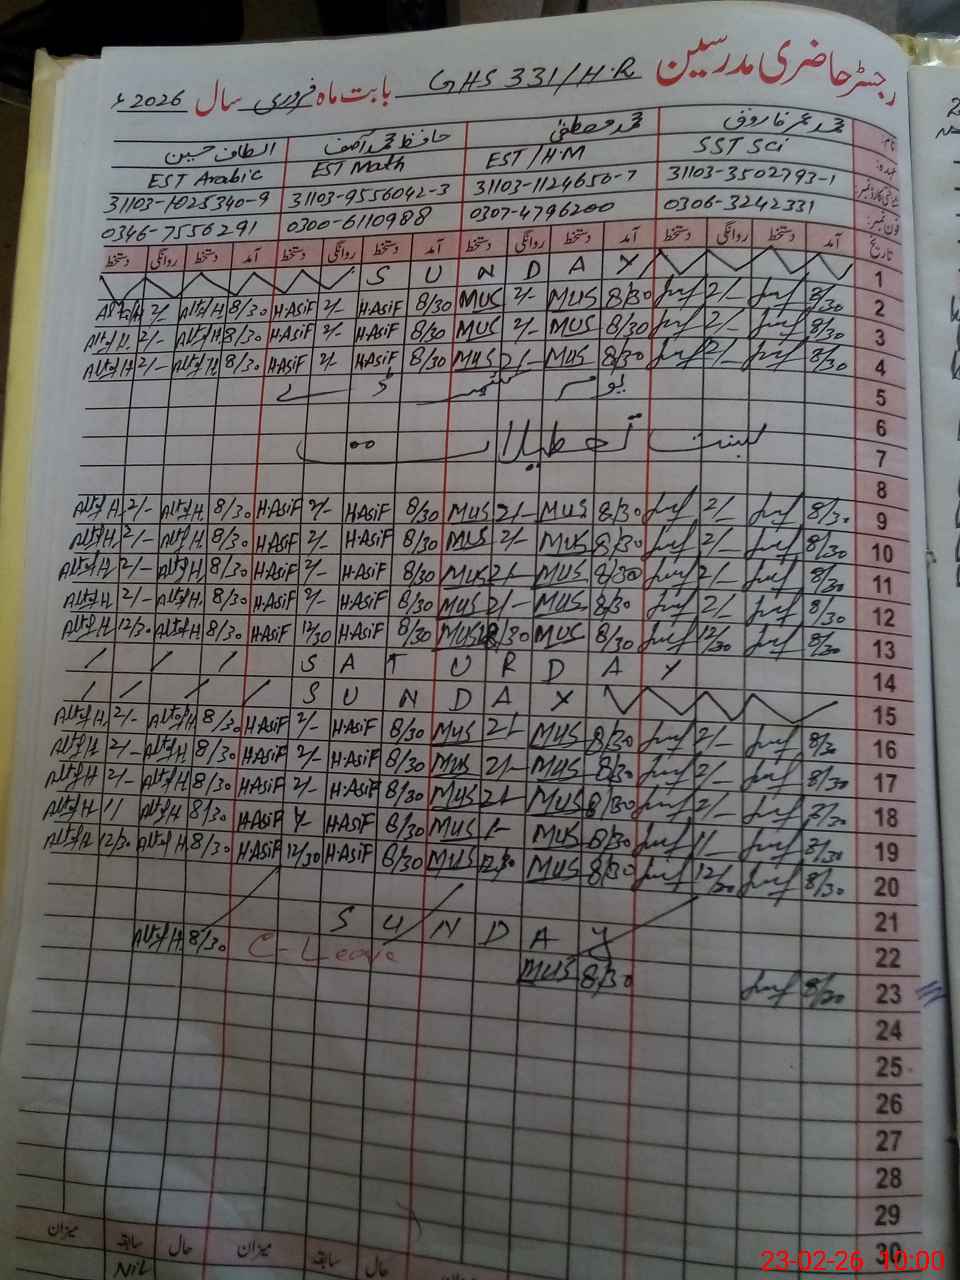 رجسٹر حاضری مدرسین GHS 331/H.R بابت ماہ فروری سال 2026ء
نام: محمد عمر فاروق محمد مصطفیٰ حافظ محمد آصف الطاف حسین
عہدہ: SST Sci EST/H.M EST Math EST Arabic
شناختی کارڈ نمبر: 31103-3502793-1 31103-1124656-7 31103-9556042-3 31103-1025340-9
فون نمبر: 0306-3242331 0307-4796200 0300-6110988 0346-7556291
تاریخ آمد دستخط روانگی دستخط آمد دستخط روانگی دستخط آمد دستخط روانگی دستخط آمد دستخط روانگی دستخط
1 SUNDAY
2 8/30 2/- 8/30 MUS 2/- MUS 8/30 H.ASiF 2/- H.ASiF 8/30 Altaf H 2/-
3 8/30 2/- 8/30 MUS 2/- MUS 8/30 H.ASiF 2/- H.ASiF 8/30 Altaf H 2/- Altaf H.
4 8/30 2/- 8/30 MUS 2/- MUS 8/30 H.ASiF 2/- H.ASiF 8/30 Altaf H 2/- Altaf H
5 یوم کشمیر ڈے
6
7 بسنت تعطیلات
8
9 8/30 2/- 8/30 MUS 2/- MUS 8/30 H.ASiF 2/- H.ASiF 8/30 Altaf H. 2/- Altaf H.
10 8/30 2/- 8/30 MUS 2/- MUS 8/30 H.ASiF 2/- H.ASiF 8/30 Altaf H. 2/- Altaf H.
11 8/30 2/- 8/30 MUS 2/- MUS 8/30 H.ASiF 2/- H.ASiF 8/30 Altaf H. 2/- Altaf H.
12 8/30 2/- 8/30 MUS 2/- MUS 8/30 H.ASiF 2/- H.ASiF 8/30 Altaf H. 2/- Altaf H.
13 8/30 12/30 8/30 MUS MUS 8/30 H.ASiF 12/30 H.ASiF 8/30 Altaf H. 12/30 Altaf H.
14 SATURDAY
15 SUNDAY
16 8/30 2/- 8/30 MUS 2/- MUS 8/30 H.ASiF 2/- H.ASiF 8/30 Altaf H 2/- Altaf H.
17 8/30 2/- 8/30 MUS 2/- MUS 8/30 H.ASiF 2/- H.ASiF 8/30 Altaf H. 2/- Altaf H.
18 8/30 2/- 8/30 MUS 2/- MUS 8/30 H.ASiF 2/- H.ASiF 8/30 Altaf H 2/- Altaf H
19 8/30 11 8/30 MUS MUS 8/30 H.ASiF H.ASiF 8/30 Altaf H 11 Altaf H
20 8/30 12/30 8/30 MUS MUS 8/30 H.ASiF 12/30 H.ASiF 8/30 Altaf H 12/30 Altaf H
21
22 SUNDAY
23 8/30 8/30 MUS C-Leave 8/30 Altaf H.
24
25
26
27
28
29
30
حال سابقہ میزان حال سابقہ میزان
Nil
23-02-26 10:00